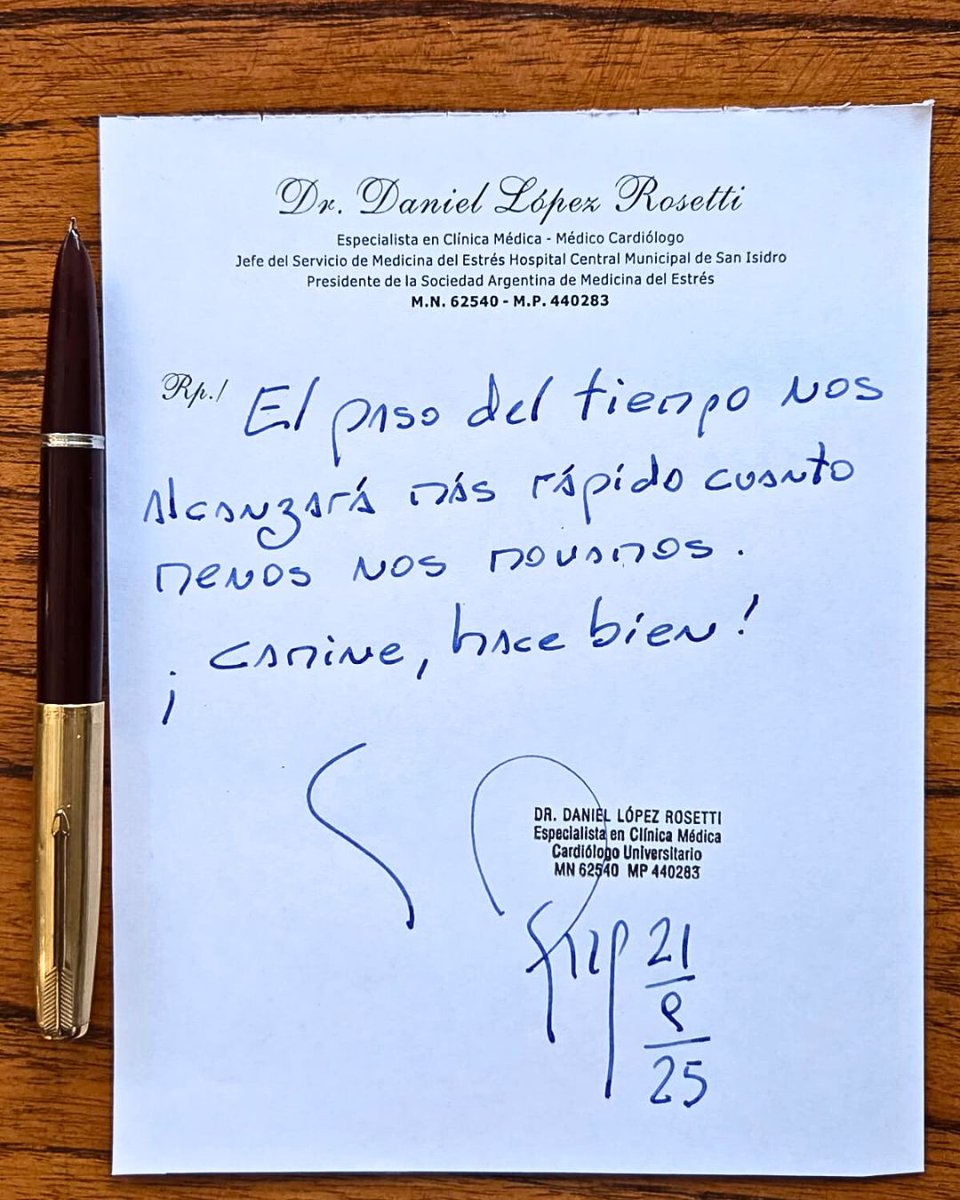 Dr. Daniel López Rosetti
Especialista en Clínica Médica - Médico Cardiólogo
Jefe del Servicio de Medicina del Estrés Hospital Central Municipal de San Isidro
Presidente de la Sociedad Argentina de Medicina del Estrés
M.N. 62540 - M.P. 440283
Rp./ El paso del tiempo nos
alcanzará más rápido cuanto
menos nos movamos.
¡camine, hace bien!
DR. DANIEL LÓPEZ ROSETTI
Especialista en Clínica Médica
Cardiólogo Universitario
MN 62540 MP 440283
21
25